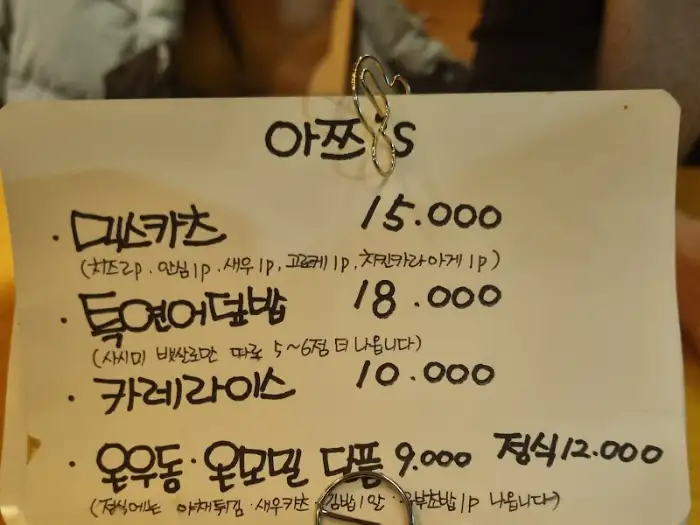 아쯔's
· 믹스카츠 15.000
(치즈2p. 안심1p. 새우1p, 고로케1p, 치킨카라아게1p)
· 특연어덮밥 18.000
(사시미 뱃살로만 따로 5~6점 더 나옵니다)
· 카레라이스 10.000
· 온우동·온모밀 단품 9.000 정식 12.000
(정식에는 야채튀김·새우카츠·김밥1알·유부초밥1p 나옵니다)